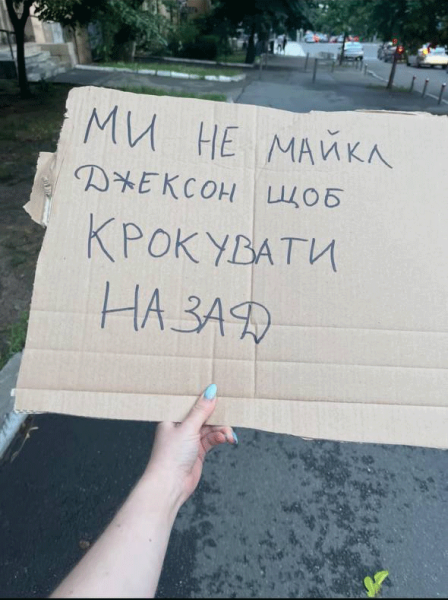 МИ НЕ МАЙКЛ
ДЖЕКСОН ЩОБ
КРОКУВАТИ
НАЗАД